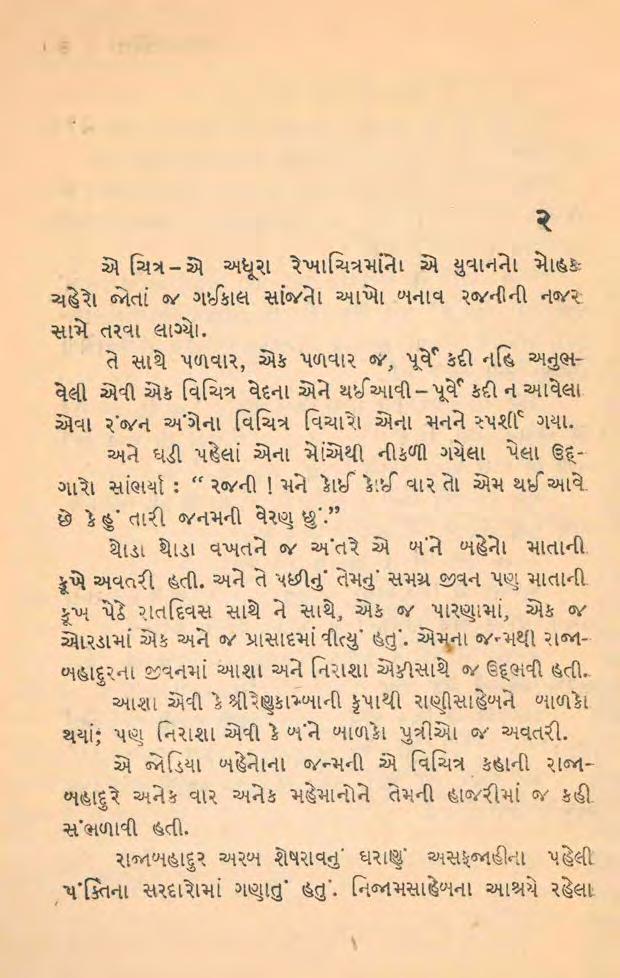 ૨
એ ચિત્ર – એ અધૂરા રેખાચિત્રમાંનો એ યુવાનનો મોહક
ચહેરો જોતાં જ ગઈકાલ સાંજનો આખો બનાવ રજનીની નજર
સામે તરવા લાગ્યો.
તે સાથે પળવાર, એક પળવાર જ, પૂર્વે કદી નહિ અનુભ-
વેલી એવી એક વિચિત્ર વેદના એને થઈ આવી – પૂર્વે કદી ન આવેલા
એવા રંજન અંગેના વિચિત્ર વિચારો એના મનને સ્પર્શી ગયા.
અને ઘડી પહેલાં એના મોંએથી નીકળી ગયેલા પેલા ઉદ્-
ગારો સાંભર્યા : “ રજની ! મને કોઈ કોઈ વાર તો એમ થઈ આવે
છે કે હું તારી જનમની વેરણ છું.”
થોડા થોડા વખતને જ અંતરે એ બંને બહેનો માતાની
કૂખે અવતરી હતી. અને તે પછીનું તેમનું સમગ્ર જીવન પણ માતાની
કૂખ પેઠે રાતદિવસ સાથે ને સાથે, એક જ પારણામાં, એક જ
ઓરડામાં એક અને જ પ્રાસાદમાં વીત્યું હતું. એમના જન્મથી રાજા-
બહાદુરના જીવનમાં આશા અને નિરાશા એકીસાથે જ ઉદ્ભવી હતી.
આશા એવી કે શ્રીરેણુકામ્બાની કૃપાથી રાણીસાહેબને બાળકો
થયાં; પણ નિરાશા એવી કે બંને બાળકો પુત્રીઓ જ અવતરી.
એ જોડિયા બહેનોના જન્મની એ વિચિત્ર કહાની રાજા-
બહાદુરે અનેક વાર અનેક મહેમાનોને તેમની હાજરીમાં જ કહી
સંભળાવી હતી.
રાજાબહાદુર અરબ શેષરાવનું ઘરાણું અસફજાહીના પહેલી
પંક્તિના સરદારોમાં ગણાતું હતું. નિજામસાહેબના આશ્રયે રહેલા